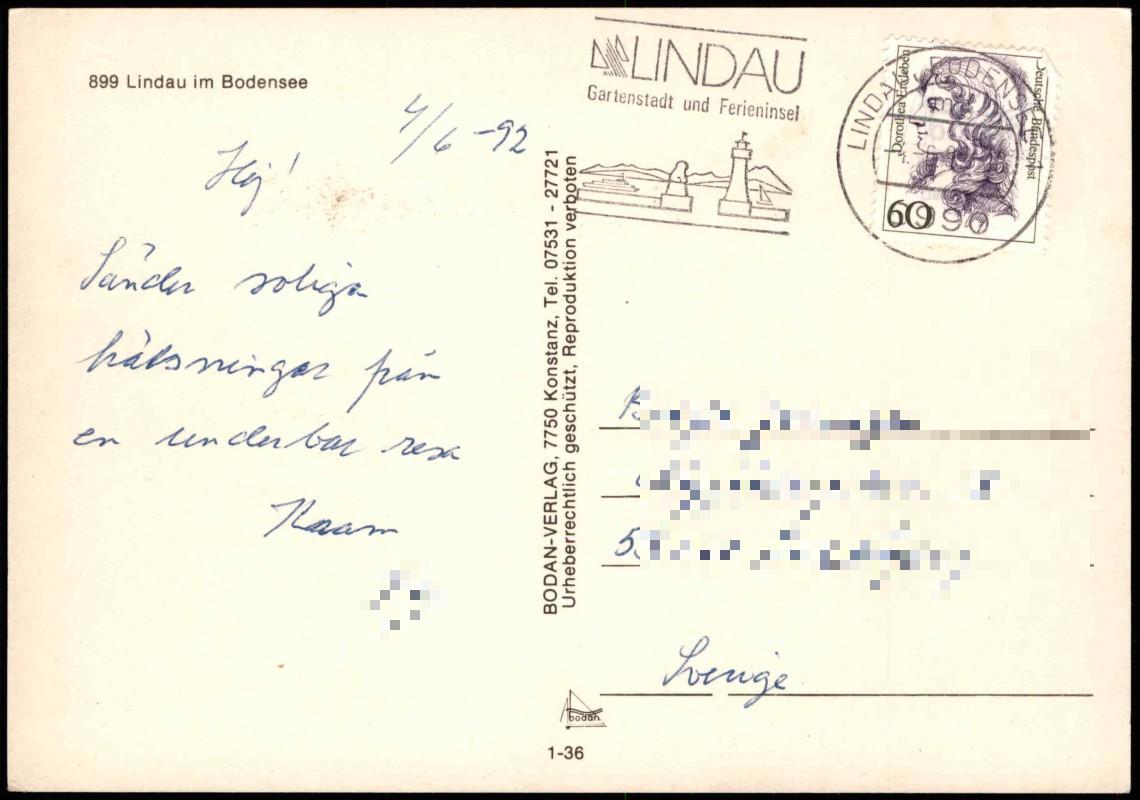 899 Lindau im Bodensee
4/6 -92
Hej!
Sänder soliga
hälsningar från
en underbar resa
BODAN-VERLAG, 7750 Konstanz, Tel. 07531 - 27721
Urheberrechtlich geschützt, Reproduktion verboten
LINDAU
Gartenstadt und Ferieninsel
LINDAU BODENSEE
8990
Dorothea Erxleben
Deutsche Bundespost
60
Sverige
bodan
1-36